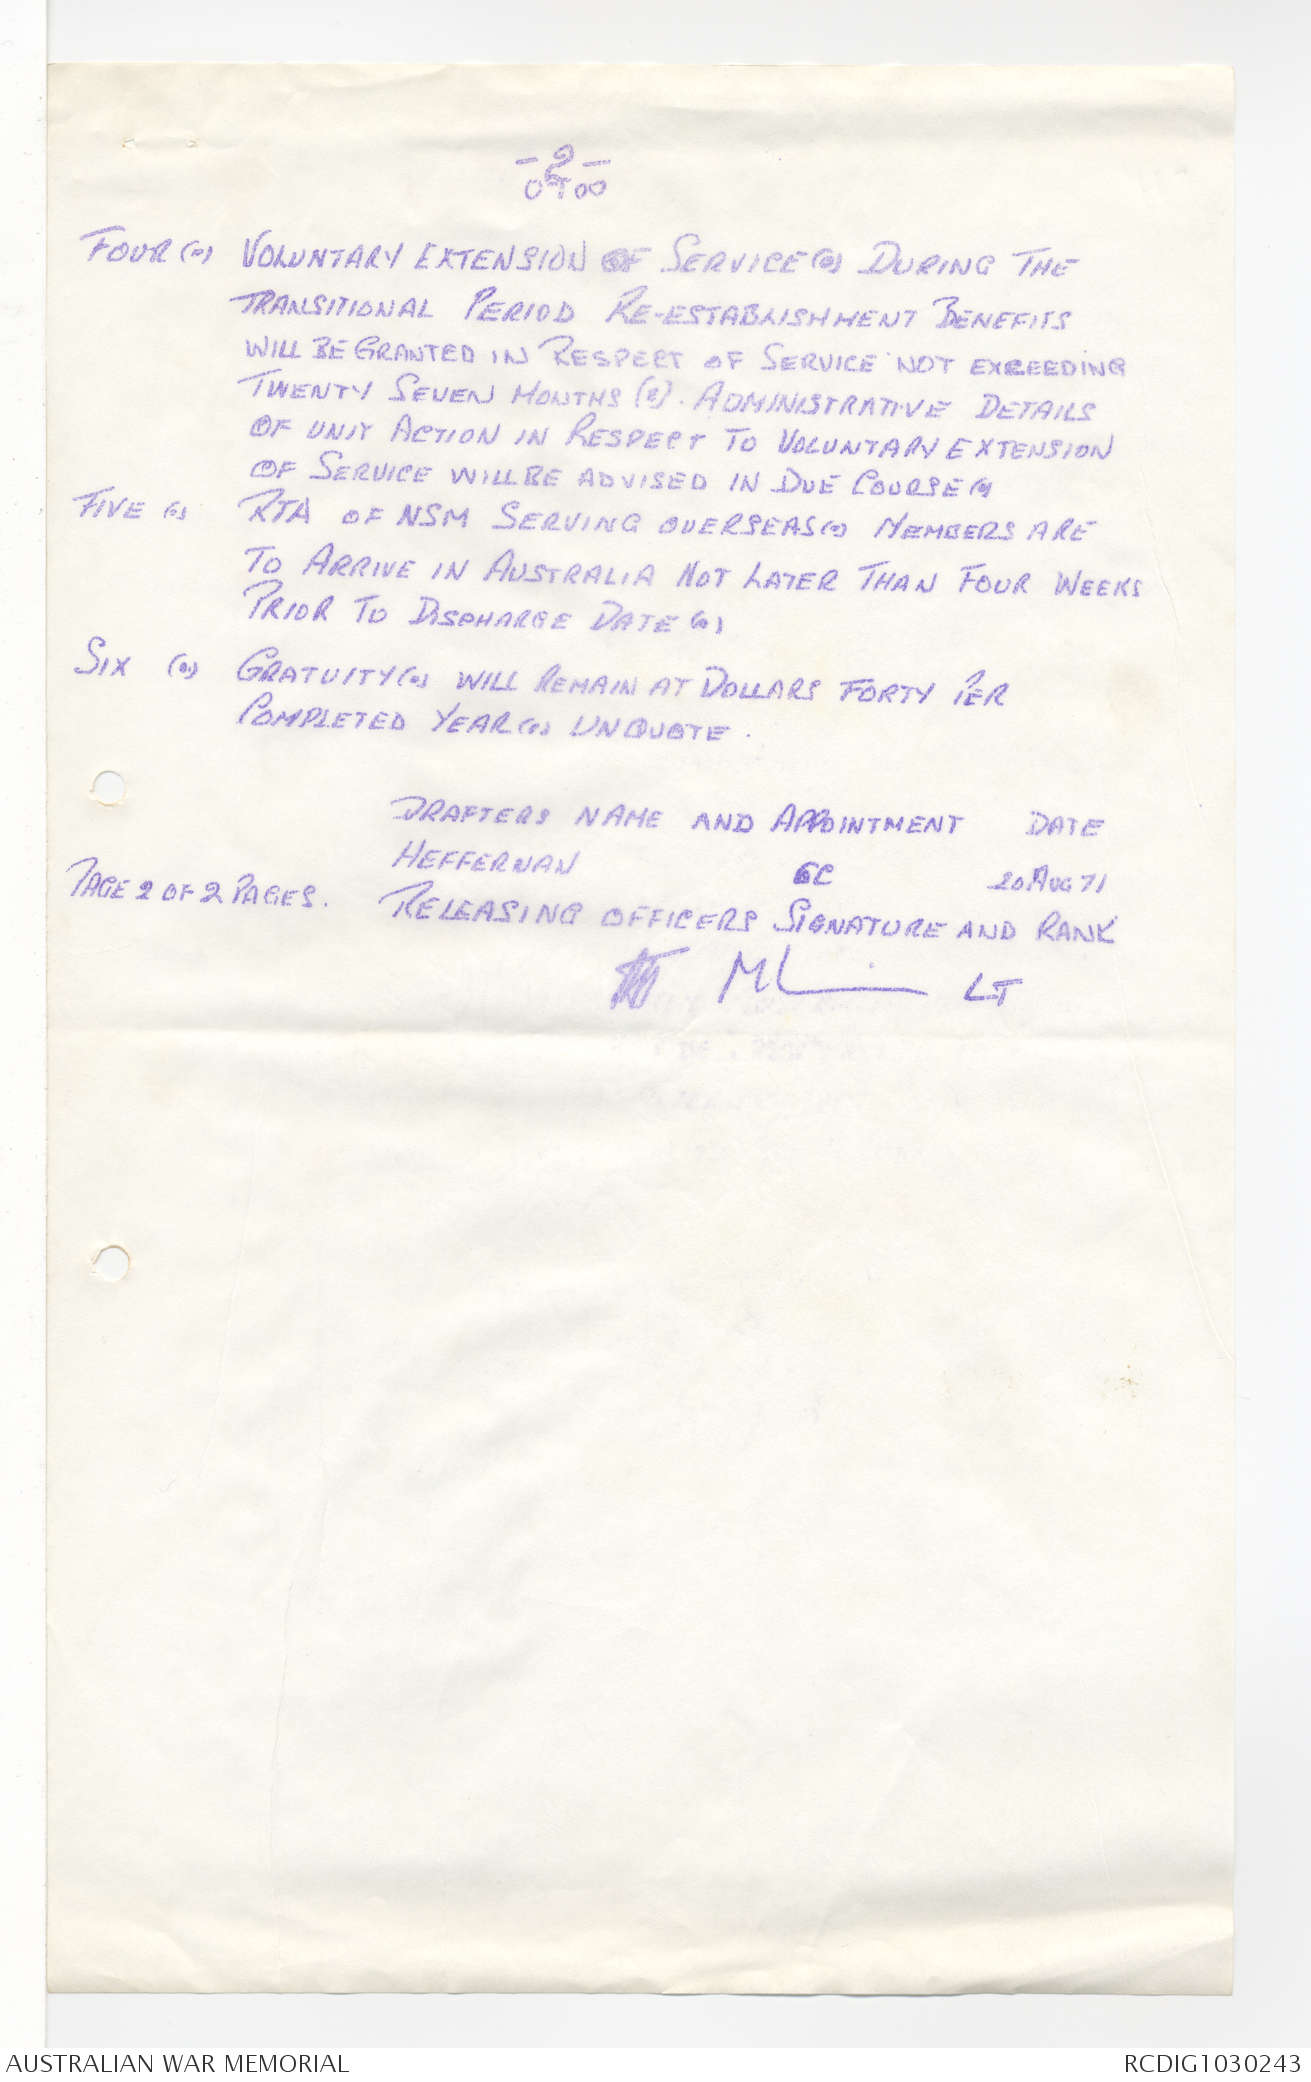 - 2 -
FOUR (.) VOLUNTARY EXTENSION OF SERVICE (.) DURING THE
TRANSITIONAL PERIOD RE-ESTABLISHMENT BENEFITS
WILL BE GRANTED IN RESPECT OF SERVICE NOT EXCEEDING
TWENTY SEVEN MONTHS (.). ADMINISTRATIVE DETAILS
OF UNIT ACTION IN RESPECT TO VOLUNTARY EXTENSION
OF SERVICE WILL BE ADVISED IN DUE COURSE (.)
FIVE (.) RTA OF NSM SERVING OVERSEAS (.) MEMBERS ARE
TO ARRIVE IN AUSTRALIA NOT LATER THAN FOUR WEEKS
PRIOR TO DISCHARGE DATE (.)
SIX (.) GRATUITY (.) WILL REMAIN AT DOLLARS FORTY PER
COMPLETED YEAR (.) UNQUOTE .
DRAFTERS NAME AND APPOINTMENT DATE
HEFFERNAN GC 20 AUG 71
PAGE 2 OF 2 PAGES.
RELEASING OFFICERS SIGNATURE AND RANK
LT
AUSTRALIAN WAR MEMORIAL
RCDIG1030243